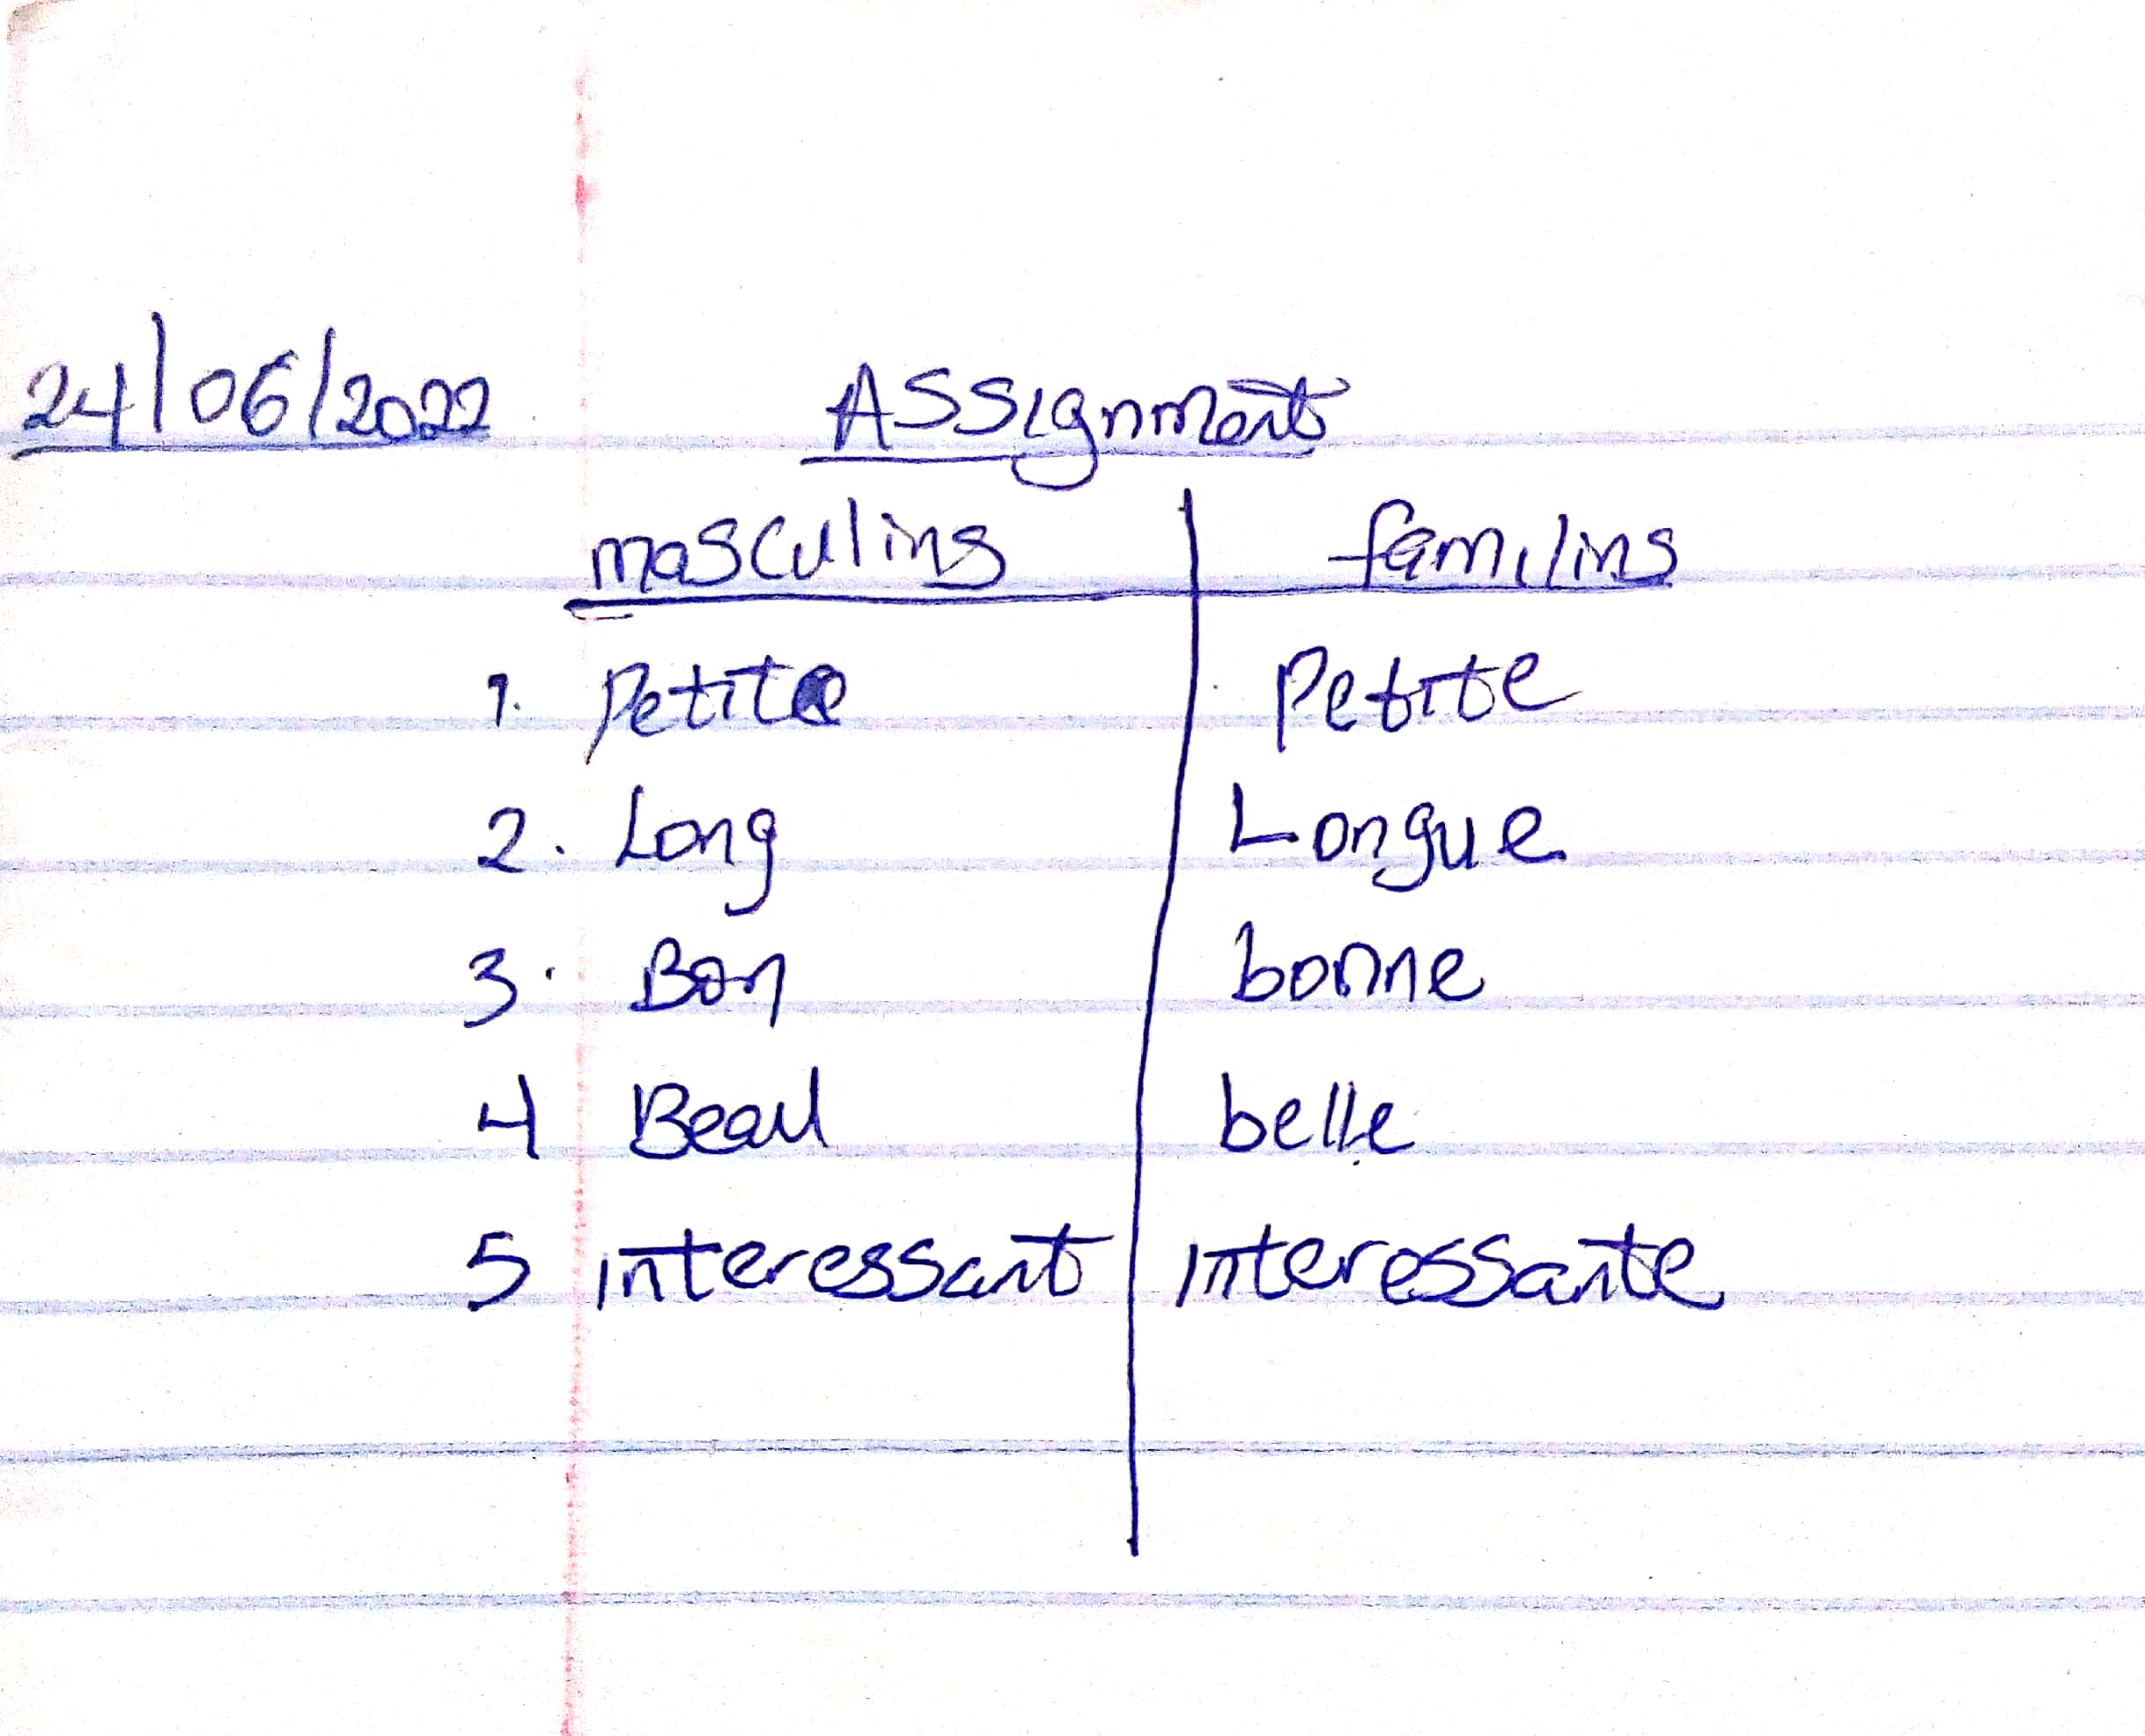 24/06/2022 Assignment
masculins familins
1. Petite Petite
2. Long Longue
3. Bon bonne
4 Beau belle
5 interessant interessante